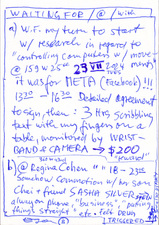 WAITING FOR / @ / with
a) W.F. my turn to start
w/ research in regard to
"controlling computers w/ move
@ 159 W 25th 23 VII 2024
it was for META (Facebook)!!!
13:00 – 16:30 Detailed agreement
to sign them: 3 Hrs scribbling
but with my finger on a
table, monitored by WRIST-
BAND & CAMERA → $200
b) @ Regina Cohen "" 18 – 23
Somehow connection w/ her son
chef & friend SASHA SILVER
always on phone, "business", putting
things straight etc. felt DRUG
TRIGGERED